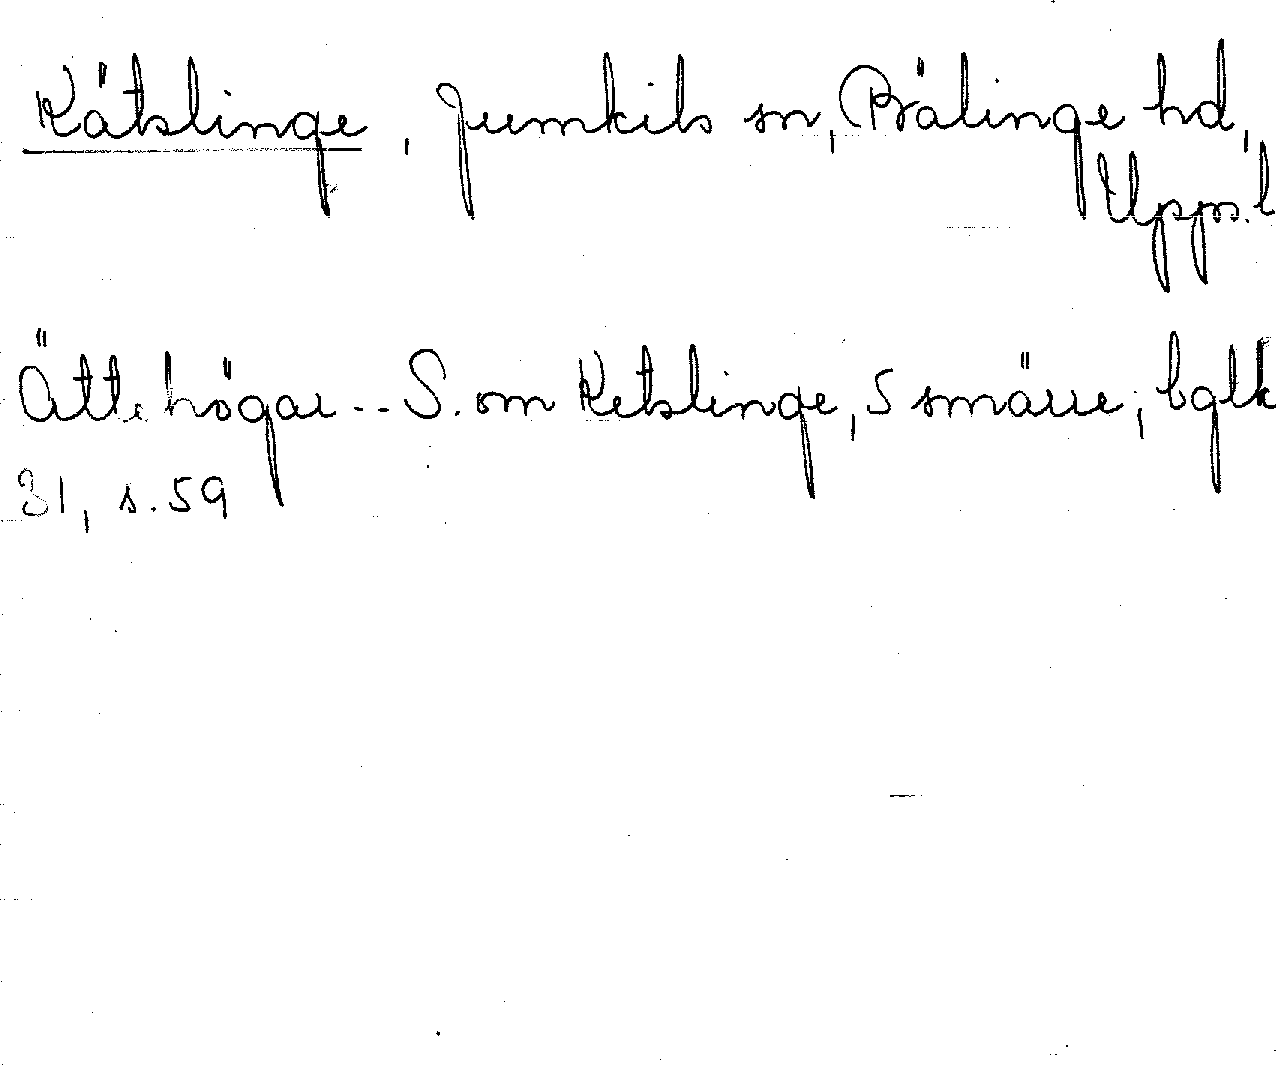 Kätslinge, Jumkils sn, Bälinge hd,
Upps. l
Ättehögar -- S. om Ketslinge, 5 smärre; bglk
31, s. 59